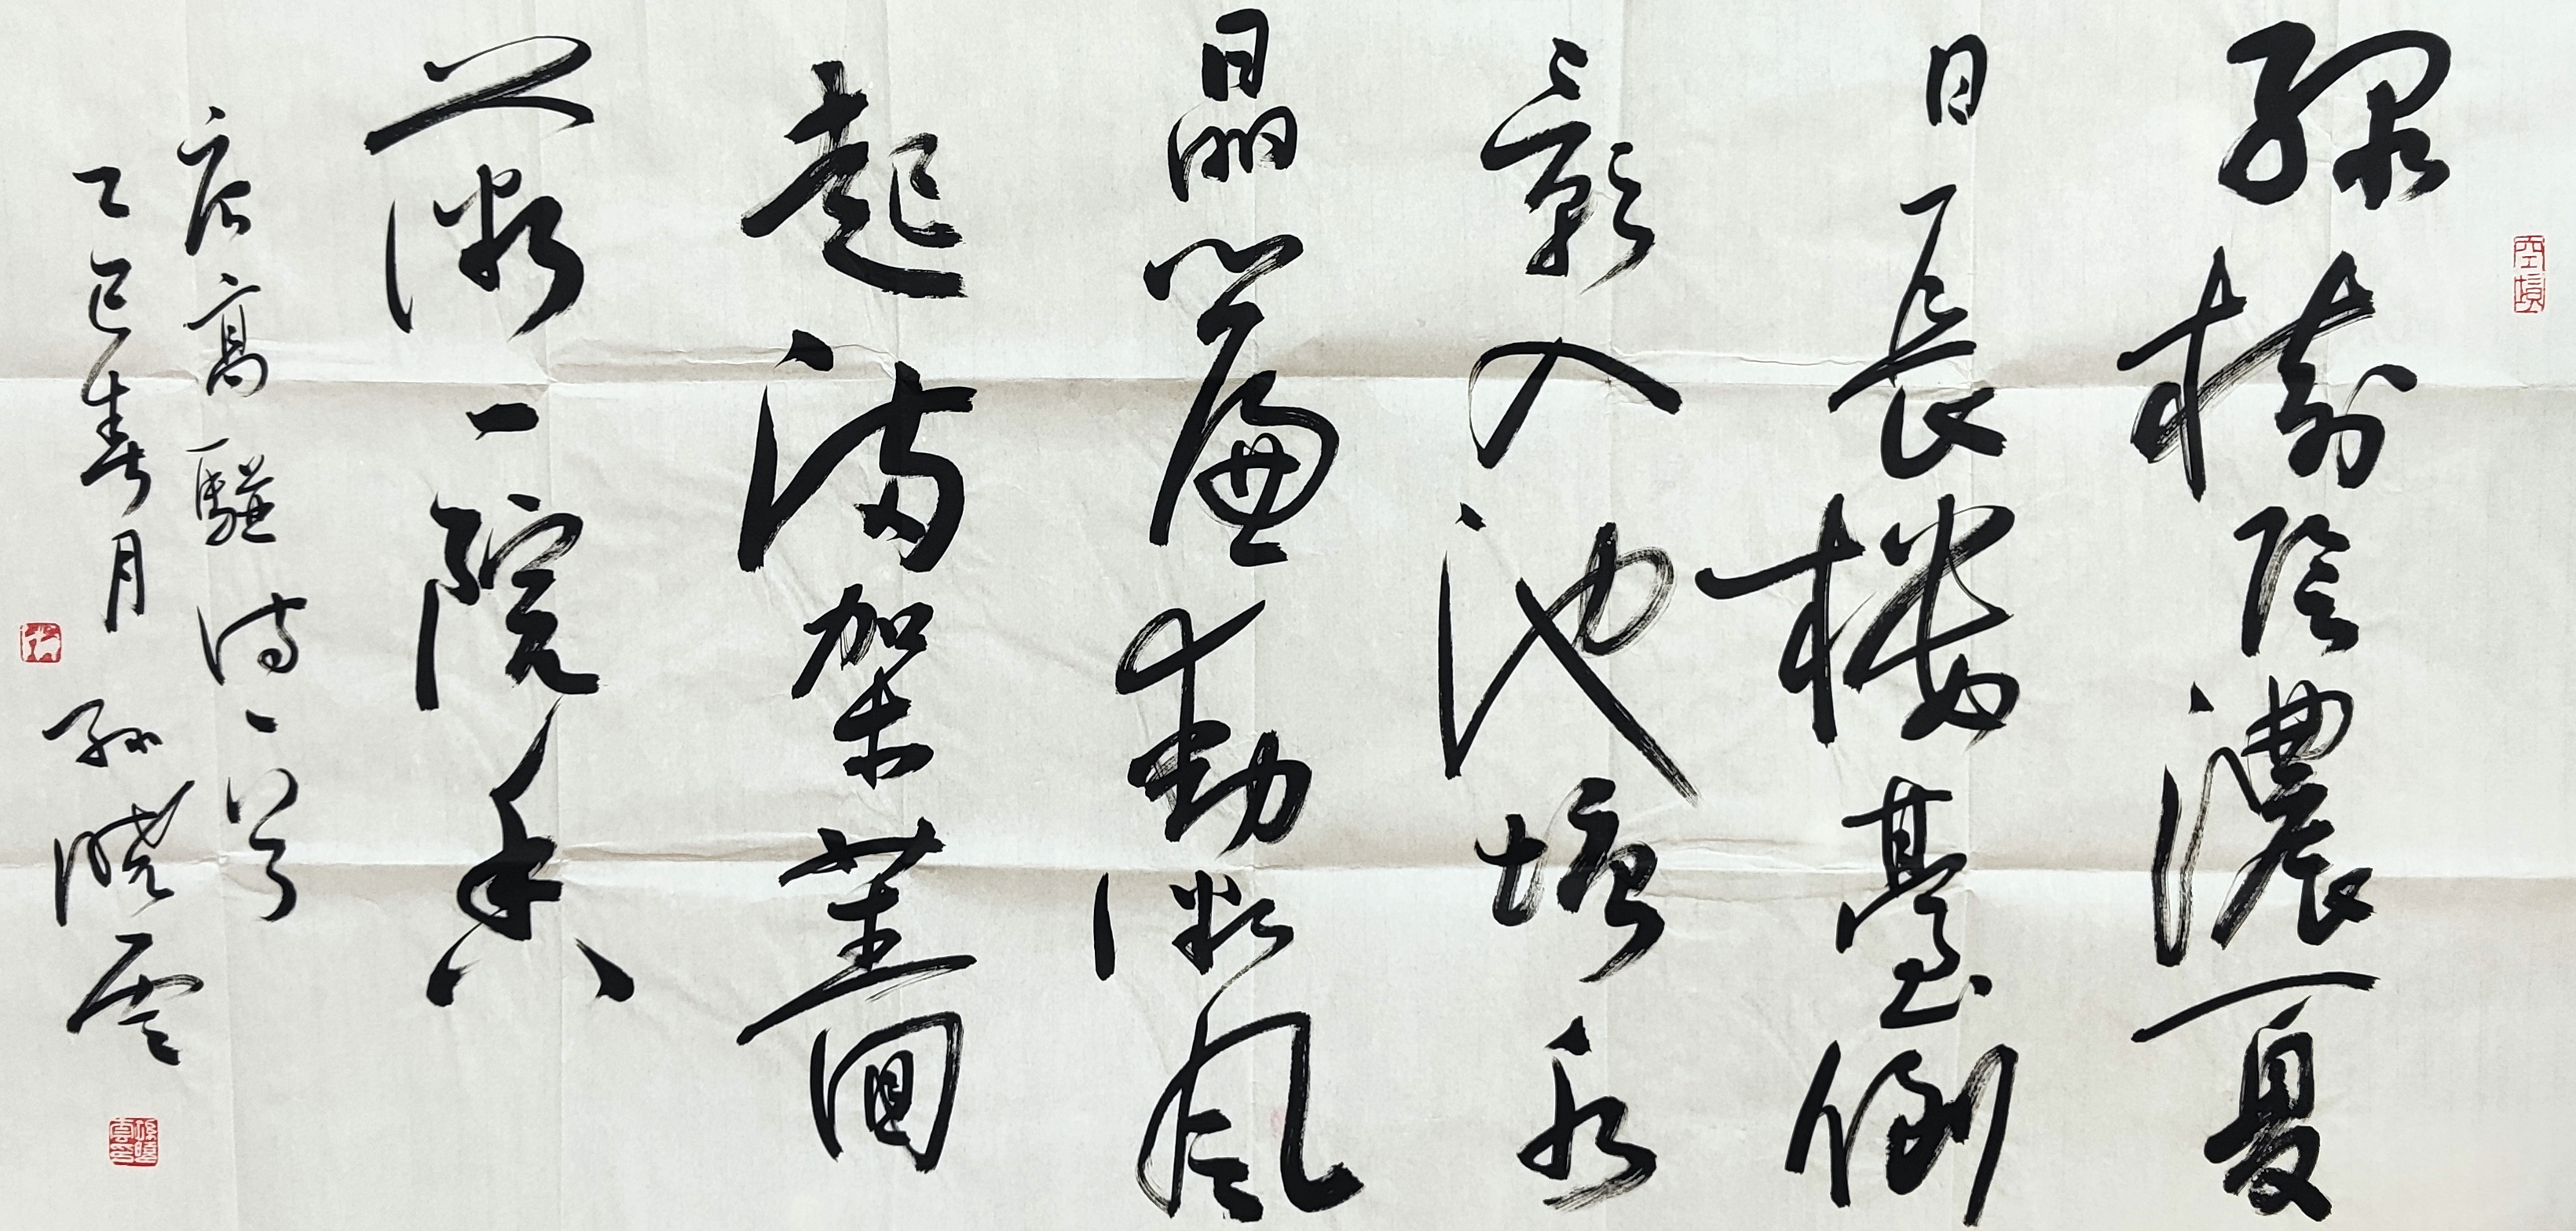 綠樹陰濃夏
日長樓臺倒
影入池塘水
晶簾動微風
起滿架薔
薇一院香
唐高駢詩一首
乙巳春月 孫曉雲
空境
孫曉雲印